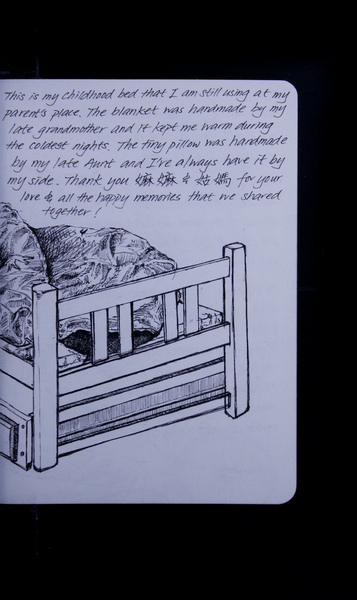 This is my childhood bed that I am still using at my
parent's place. The blanket was handmade by my
late grandmother and it kept me warm during
the coldest nights. The tiny pillow was handmade
by my late Aunt and I've always have it by
my side. Thank you 嫲嫲 & 姑媽 for your
love & all the happy memories that we shared
together!